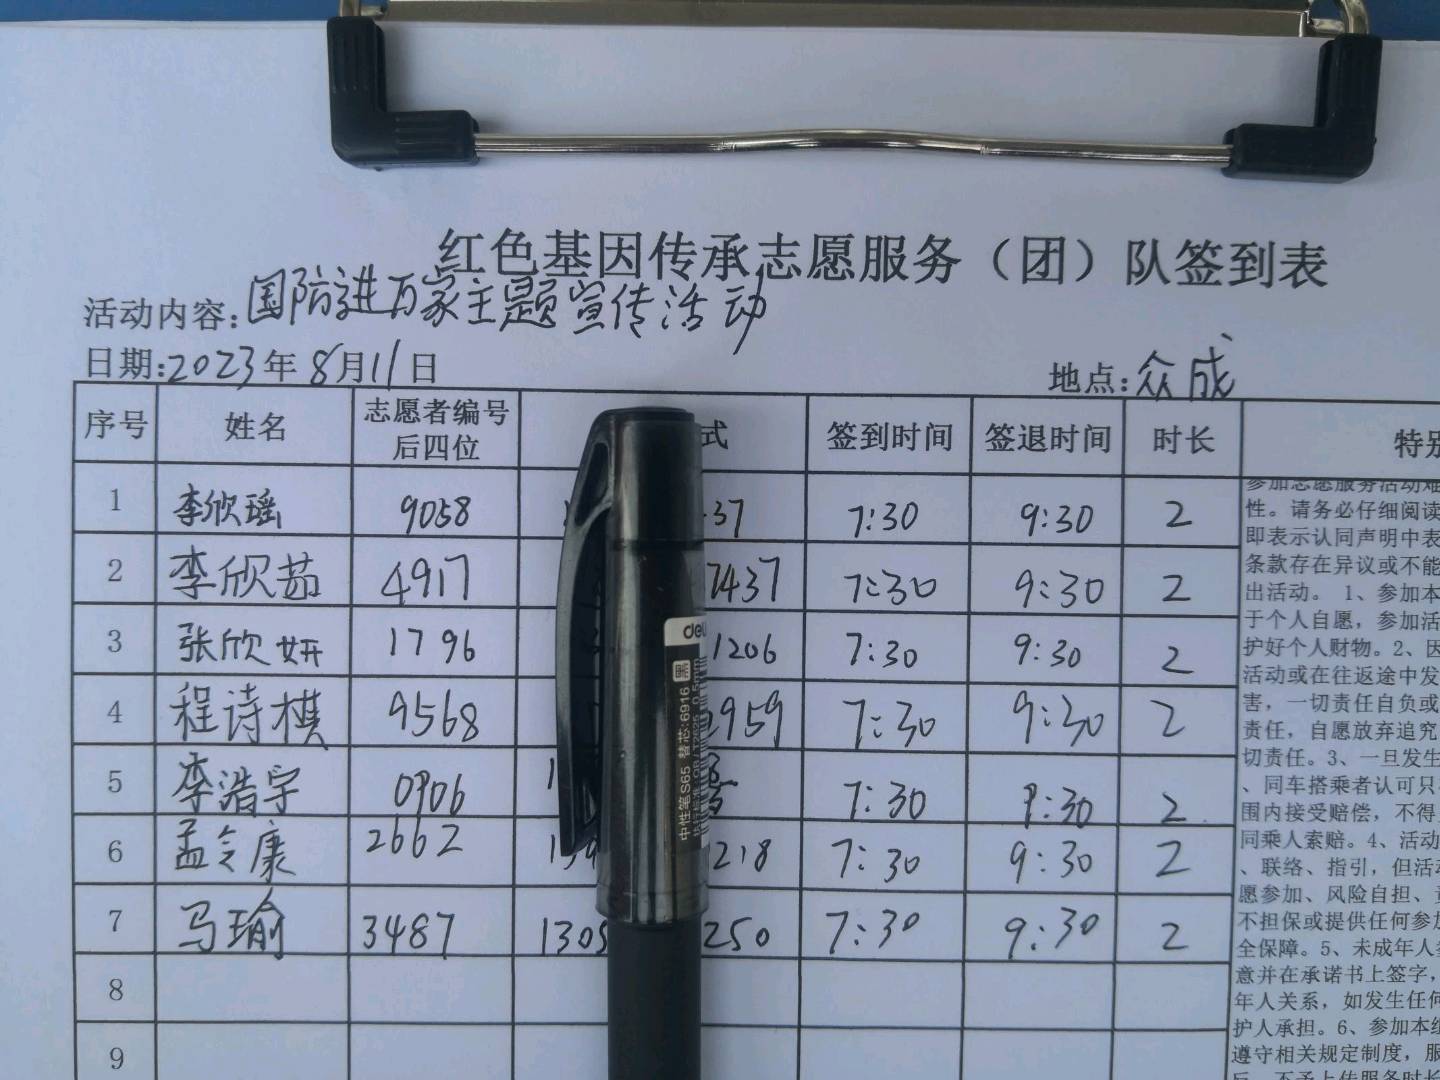 红色基因传承志愿服务（团）队签到表
活动内容：国防进万家主题宣传活动
日期：2023年8月11日 地点：众成
序号 姓名 志愿者编号后四位 式 签到时间 签退时间 时长 特别
1 李欣瑶 9058 37 7:30 9:30 2
2 李欣茹 4917 7437 7:30 9:30 2
3 张欣妍 1796 1206 7:30 9:30 2
4 程诗棋 9568 2959 7:30 9:30 2
5 李浩宇 0906 7:30 9:30 2
6 孟令康 2662 139 218 7:30 9:30 2
7 马瑜 3487 1305 250 7:30 9:30 2
8
9
参加志愿服务活动难
性。请务必仔细阅读
即表示认同声明中表
条款存在异议或不能
出活动。 1、参加本
于个人自愿，参加活
护好个人财物。2、因
活动或在往返途中发
害，一切责任自负或
责任，自愿放弃追究
切责任。3、一旦发生
、同车搭乘者认可只
围内接受赔偿，不得
同乘人索赔。4、活动
、联络、指引，但活动
愿参加、风险自担、责
不担保或提供任何参加
全保障。5、未成年人
意并在承诺书上签字，
年人关系，如发生任何
护人承担。6、参加本组
遵守相关规定制度，服
后，不予上传服务时长
deli
黑
中性笔S65 替芯:6916 0.5mm
执行标准:QB/T2625